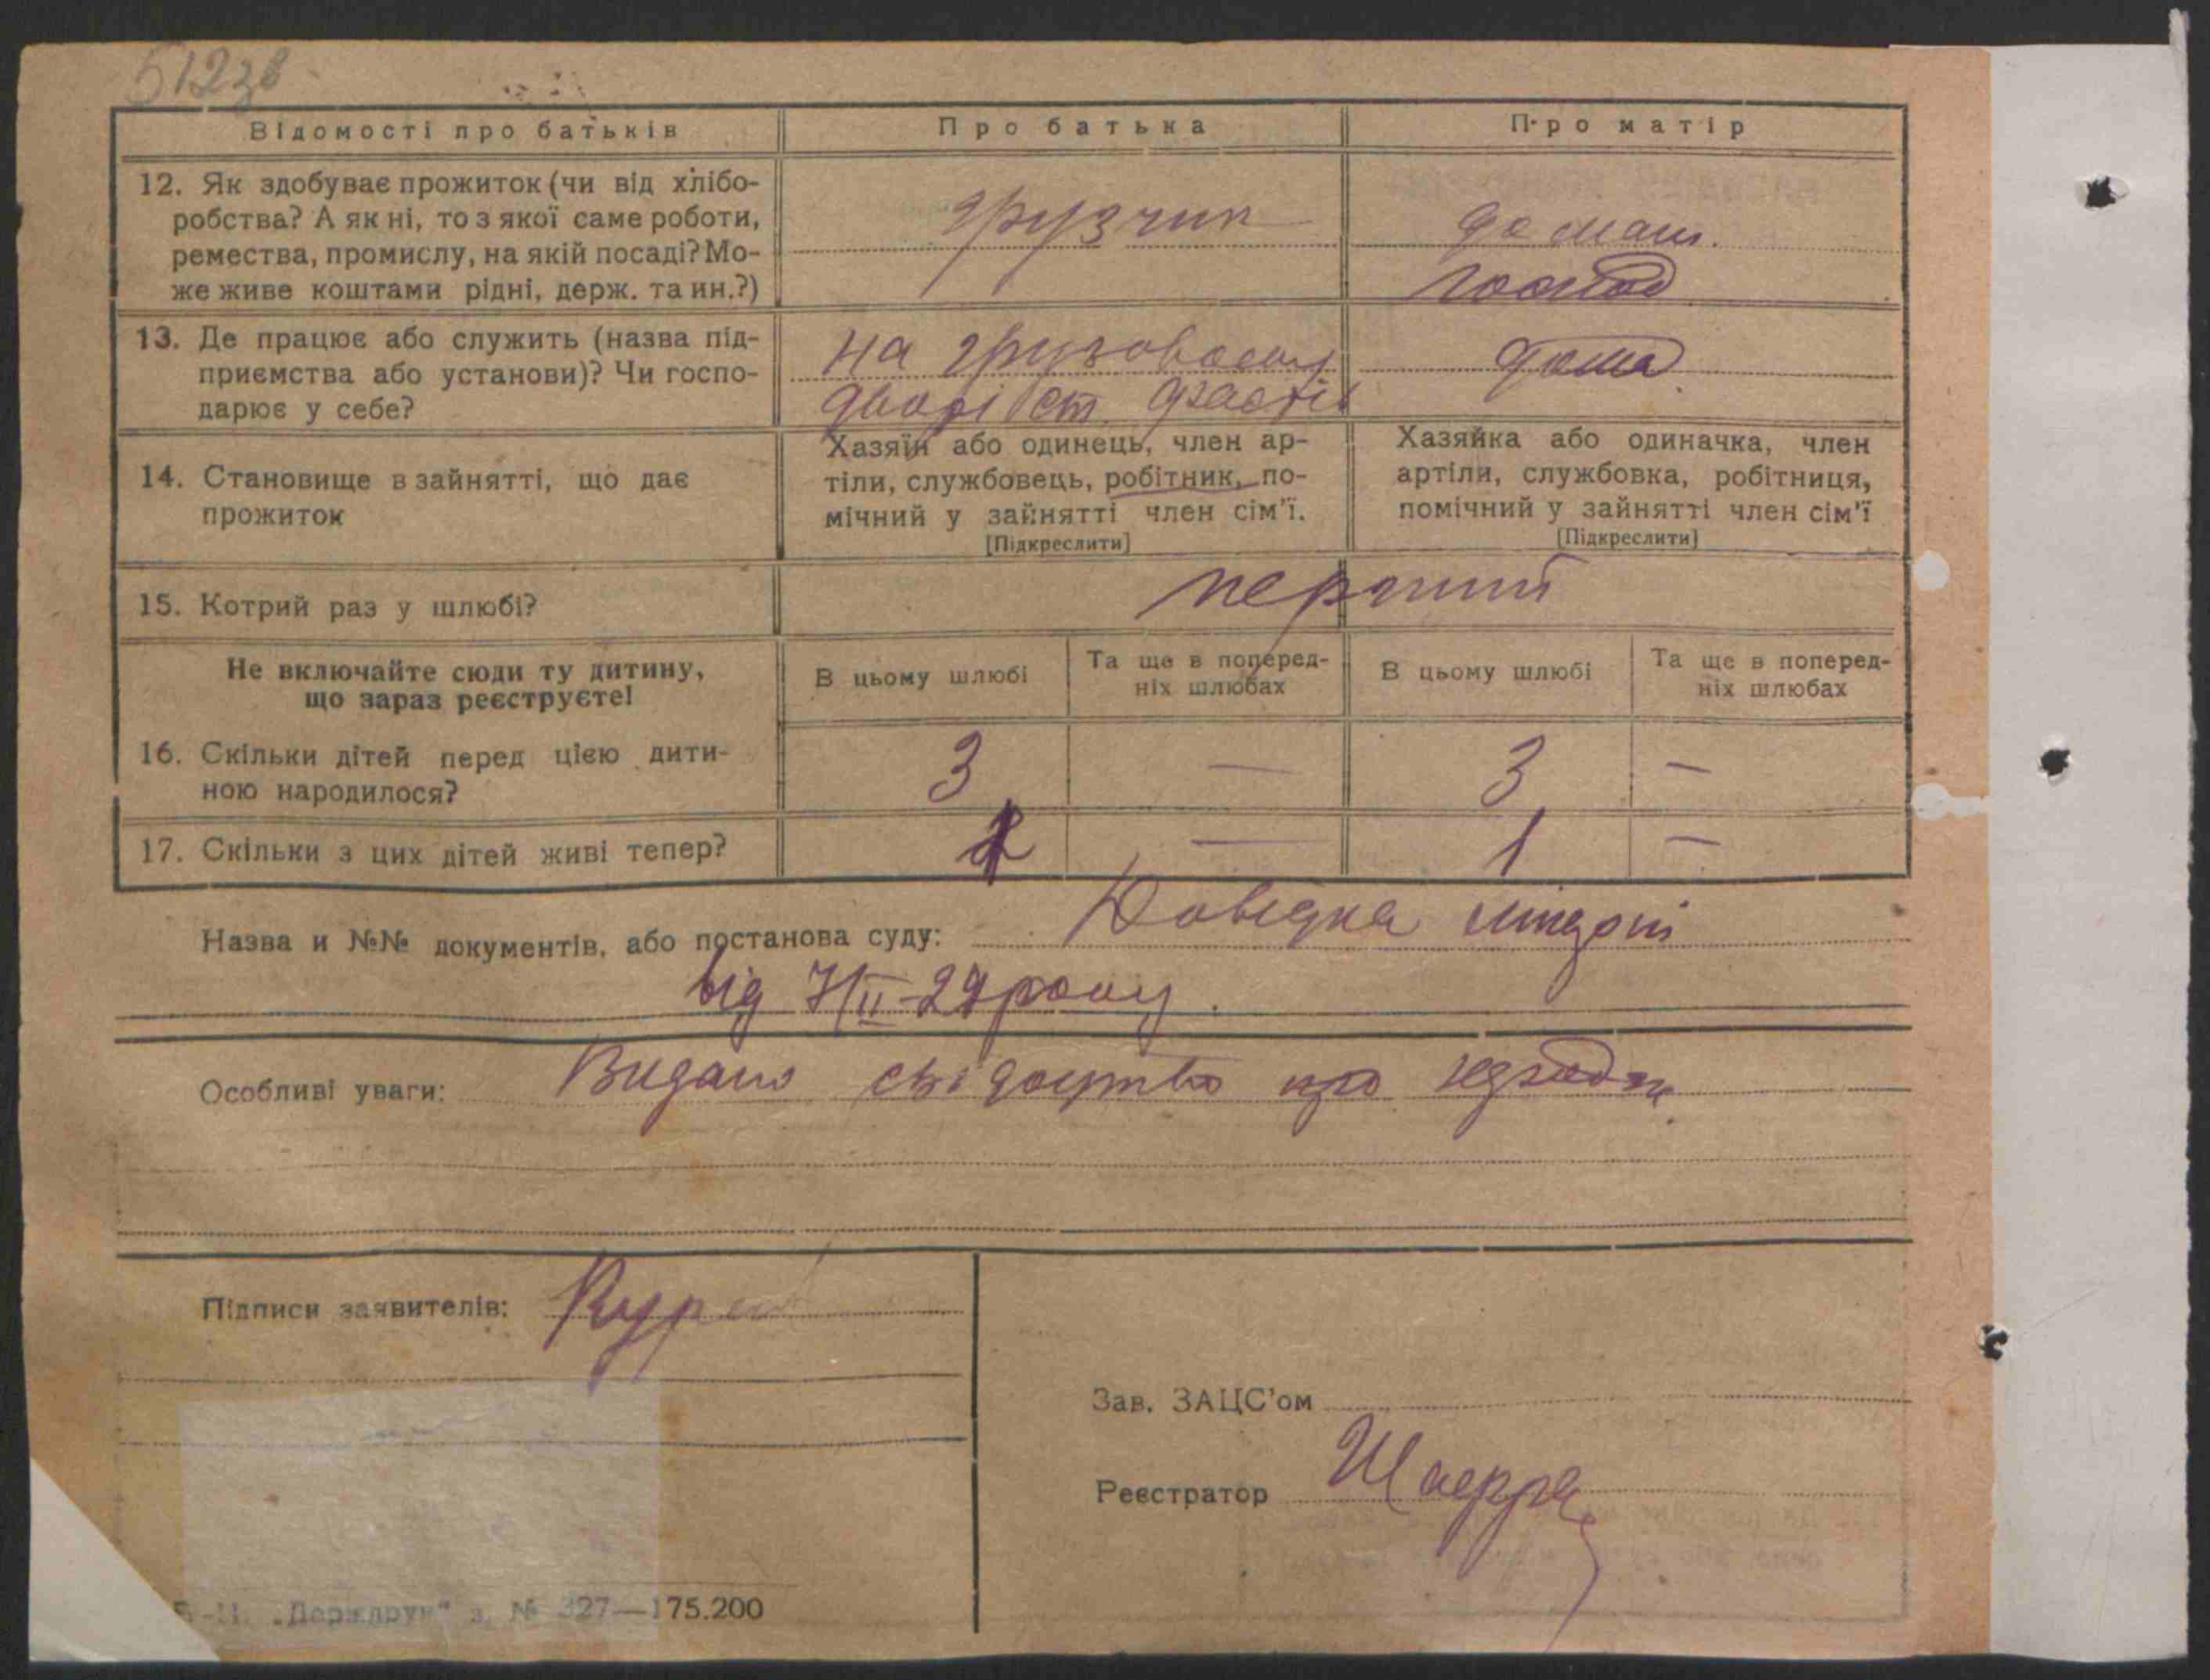 512зв
Відомості про батьків
Про батька
Про матір
12. Як здобуває прожиток (чи від хлібо-
робства? А як ні, то з якої саме роботи,
ремества, промислу, на якій посаді? Мо-
же живе коштами рідні, держ. та ин.?)
грузчик
домаш.
господ
13. Де працює або служить (назва під-
приємства або установи)? Чи госпо-
дарює у себе?
на грузовому
дворі ст.
дома
14. Становище в зайнятті, що дає
прожиток
Хазяїн або одинець, член ар-
тіли, службовець, робітник, по-
мічний у зайнятті член сім'ї.
[Підкреслити]
Хазяйка або одиначка, член
артіли, службовка, робітниця,
помічний у зайнятті член сім'ї
[Підкреслити]
15. Котрий раз у шлюбі?
перший
Не включайте сюди ту дитину,
що зараз реєструєте!
В цьому шлюбі
Та ще в поперед-
ніх шлюбах
В цьому шлюбі
Та ще в поперед-
ніх шлюбах
16. Скільки дітей перед цією дити-
ною народилося?
3 — 3 —
17. Скільки з цих дітей живі тепер?
— 1 —
Назва и №№ документів, або постанова суду: Довідка
від 7/II-29 року.
Особливі уваги: Видано свідоцтво про
Підписи заявителів:
Зав. ЗАЦС'ом
Реєстратор
"Держдрук" з. № 327—175.200